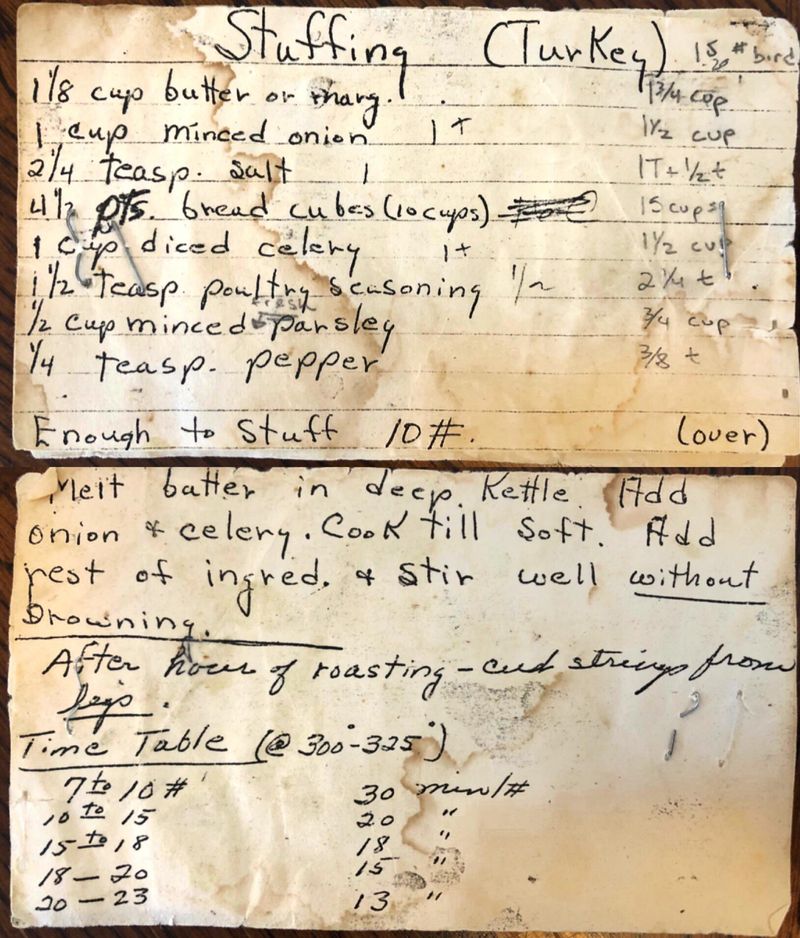 Stuffing (Turkey) 15 # bird
20
1 1/8 cup butter or marg. 1 3/4 cup
1 cup minced onion 1+ 1 1/2 cup
2 1/4 teasp. salt 1 1T + 1/2 t
4 1/2 pts. bread cubes (10 cups) 15 cups
1 cup diced celery 1+ 1 1/2 cup
1 1/2 Teasp poultry seasoning 2 1/4 t
1/2 cup minced fresh parsley 3/4 cup
1/4 teasp. pepper 3/8 t
Enough to Stuff 10 #. (over)
Melt butter in deep Kettle. Add
onion & celery. Cook till Soft. Add
rest of ingred. & Stir well without
Browning.
After hour of roasting - cut strings from
legs.
Time Table (@ 300°-325°)
7 to 10 # 30 min/#
10 to 15 20 "
15 to 18 18 "
18 - 20 15 "
20 - 23 13 "